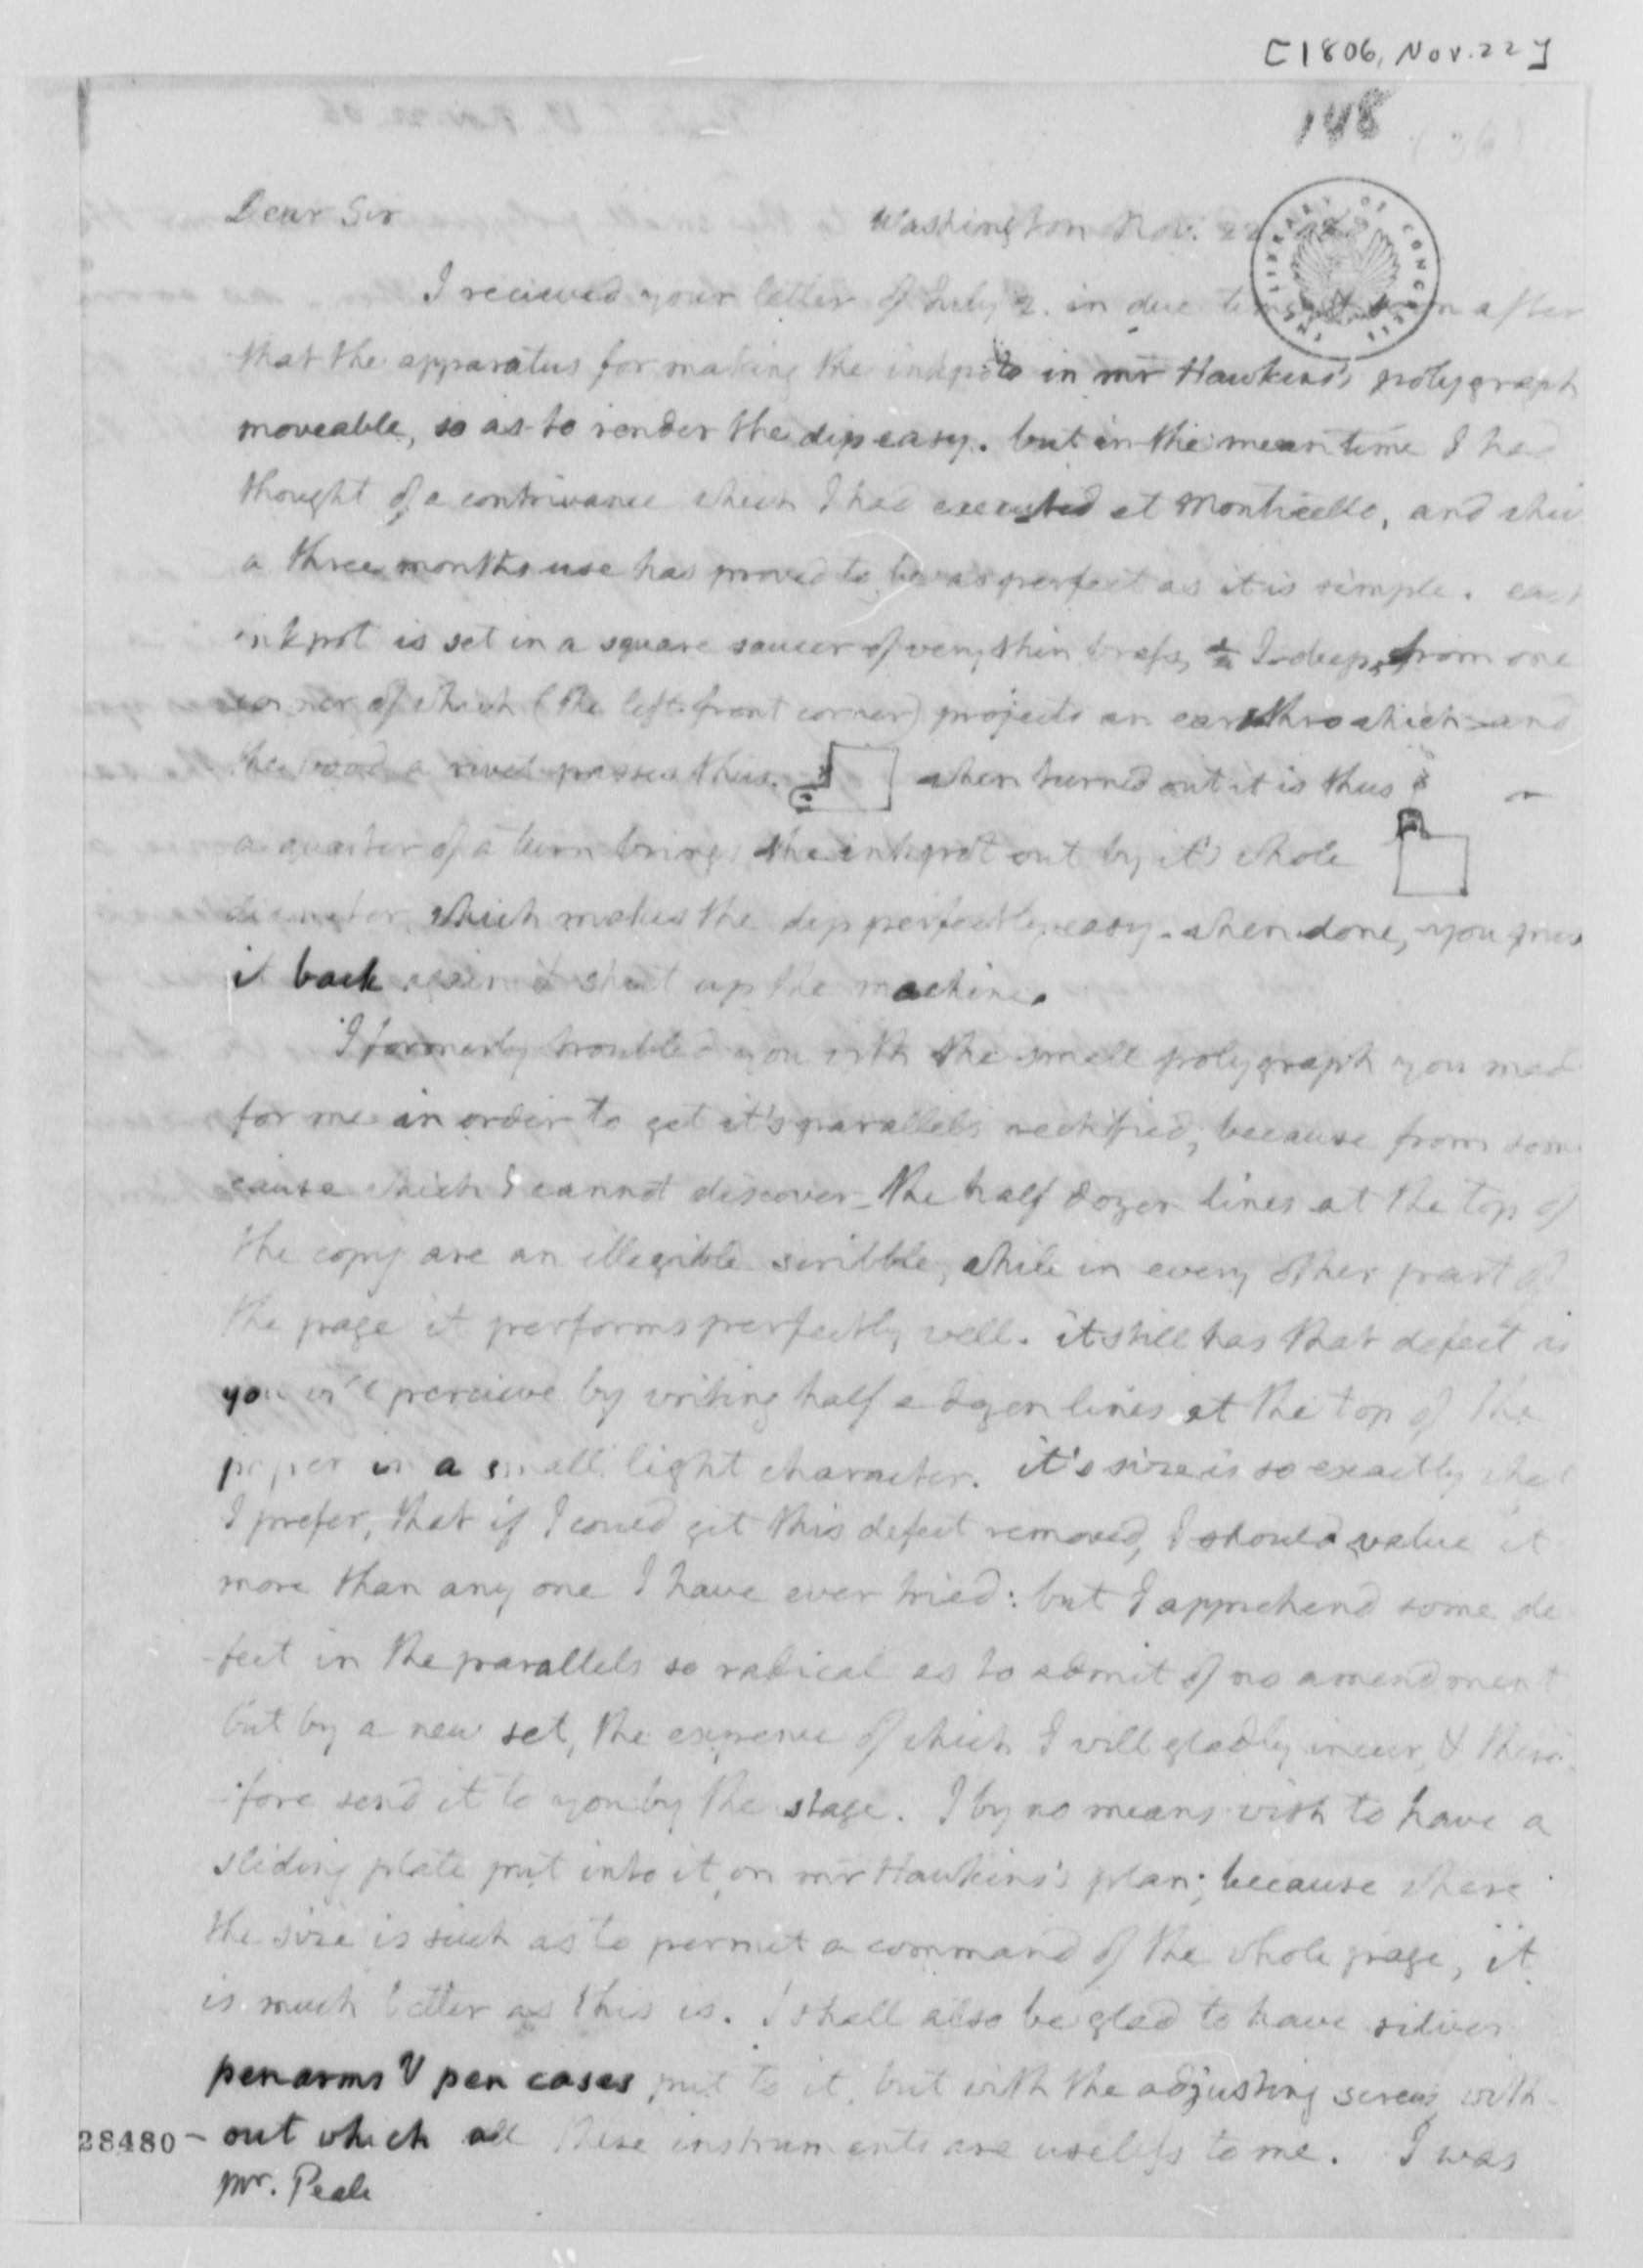 [1806, Nov. 22]
148
Dear Sir
Washington Nov. 22
THE LIBRARY OF CONGRESS
I recieved your letter of July 2. in due time, & soon after
that the apparatus for making the inkpots in mr Hawkins's polygraph
moveable, so as to render the dip easy. but in the mean time I had
thought of a contrivance which I had executed at Monticello, and which
a three months use has proved to be as perfect as it is simple. each
inkpot is set in a square saucer of very thin brass, ½ I. deep, from one
corner of which (the left front corner) projects an ear thro which and
the wood a rivet passes thus. when turned out it is thus
a quarter of a turn brings the inkpot out by it's whole
diameter, which makes the dip perfectly easy. when done, you press
it back again & shut up the machine.
I formerly troubled you with the small polygraph you made
for me in order to get it's parallels rectified, because from some
cause which I cannot discover the half dozen lines at the top of
the copy are an illegible scribble, while in every other part of
the page it performs perfectly well. it still has that defect as
you will percieve by writing half a dozen lines at the top of the
paper in a small light character. it's size is so exactly what
I prefer, that if I could get this defect removed, I should value it
more than any one I have ever tried: but I apprehend some de
-fect in the parallels so radical as to admit of no amendment
but by a new set, the expence of which I will gladly incur, & there
-fore send it to you by the stage. I by no means wish to have a
sliding plate put into it, on mr Hawkins's plan; because where
the size is such as to permit a command of the whole page, it
is much better as this is. I shall also be glad to have silver
penarms & pen cases put to it, but with the adjusting screws with-
28480 - out which all these instruments are useless to me. I was
Mr. Peale